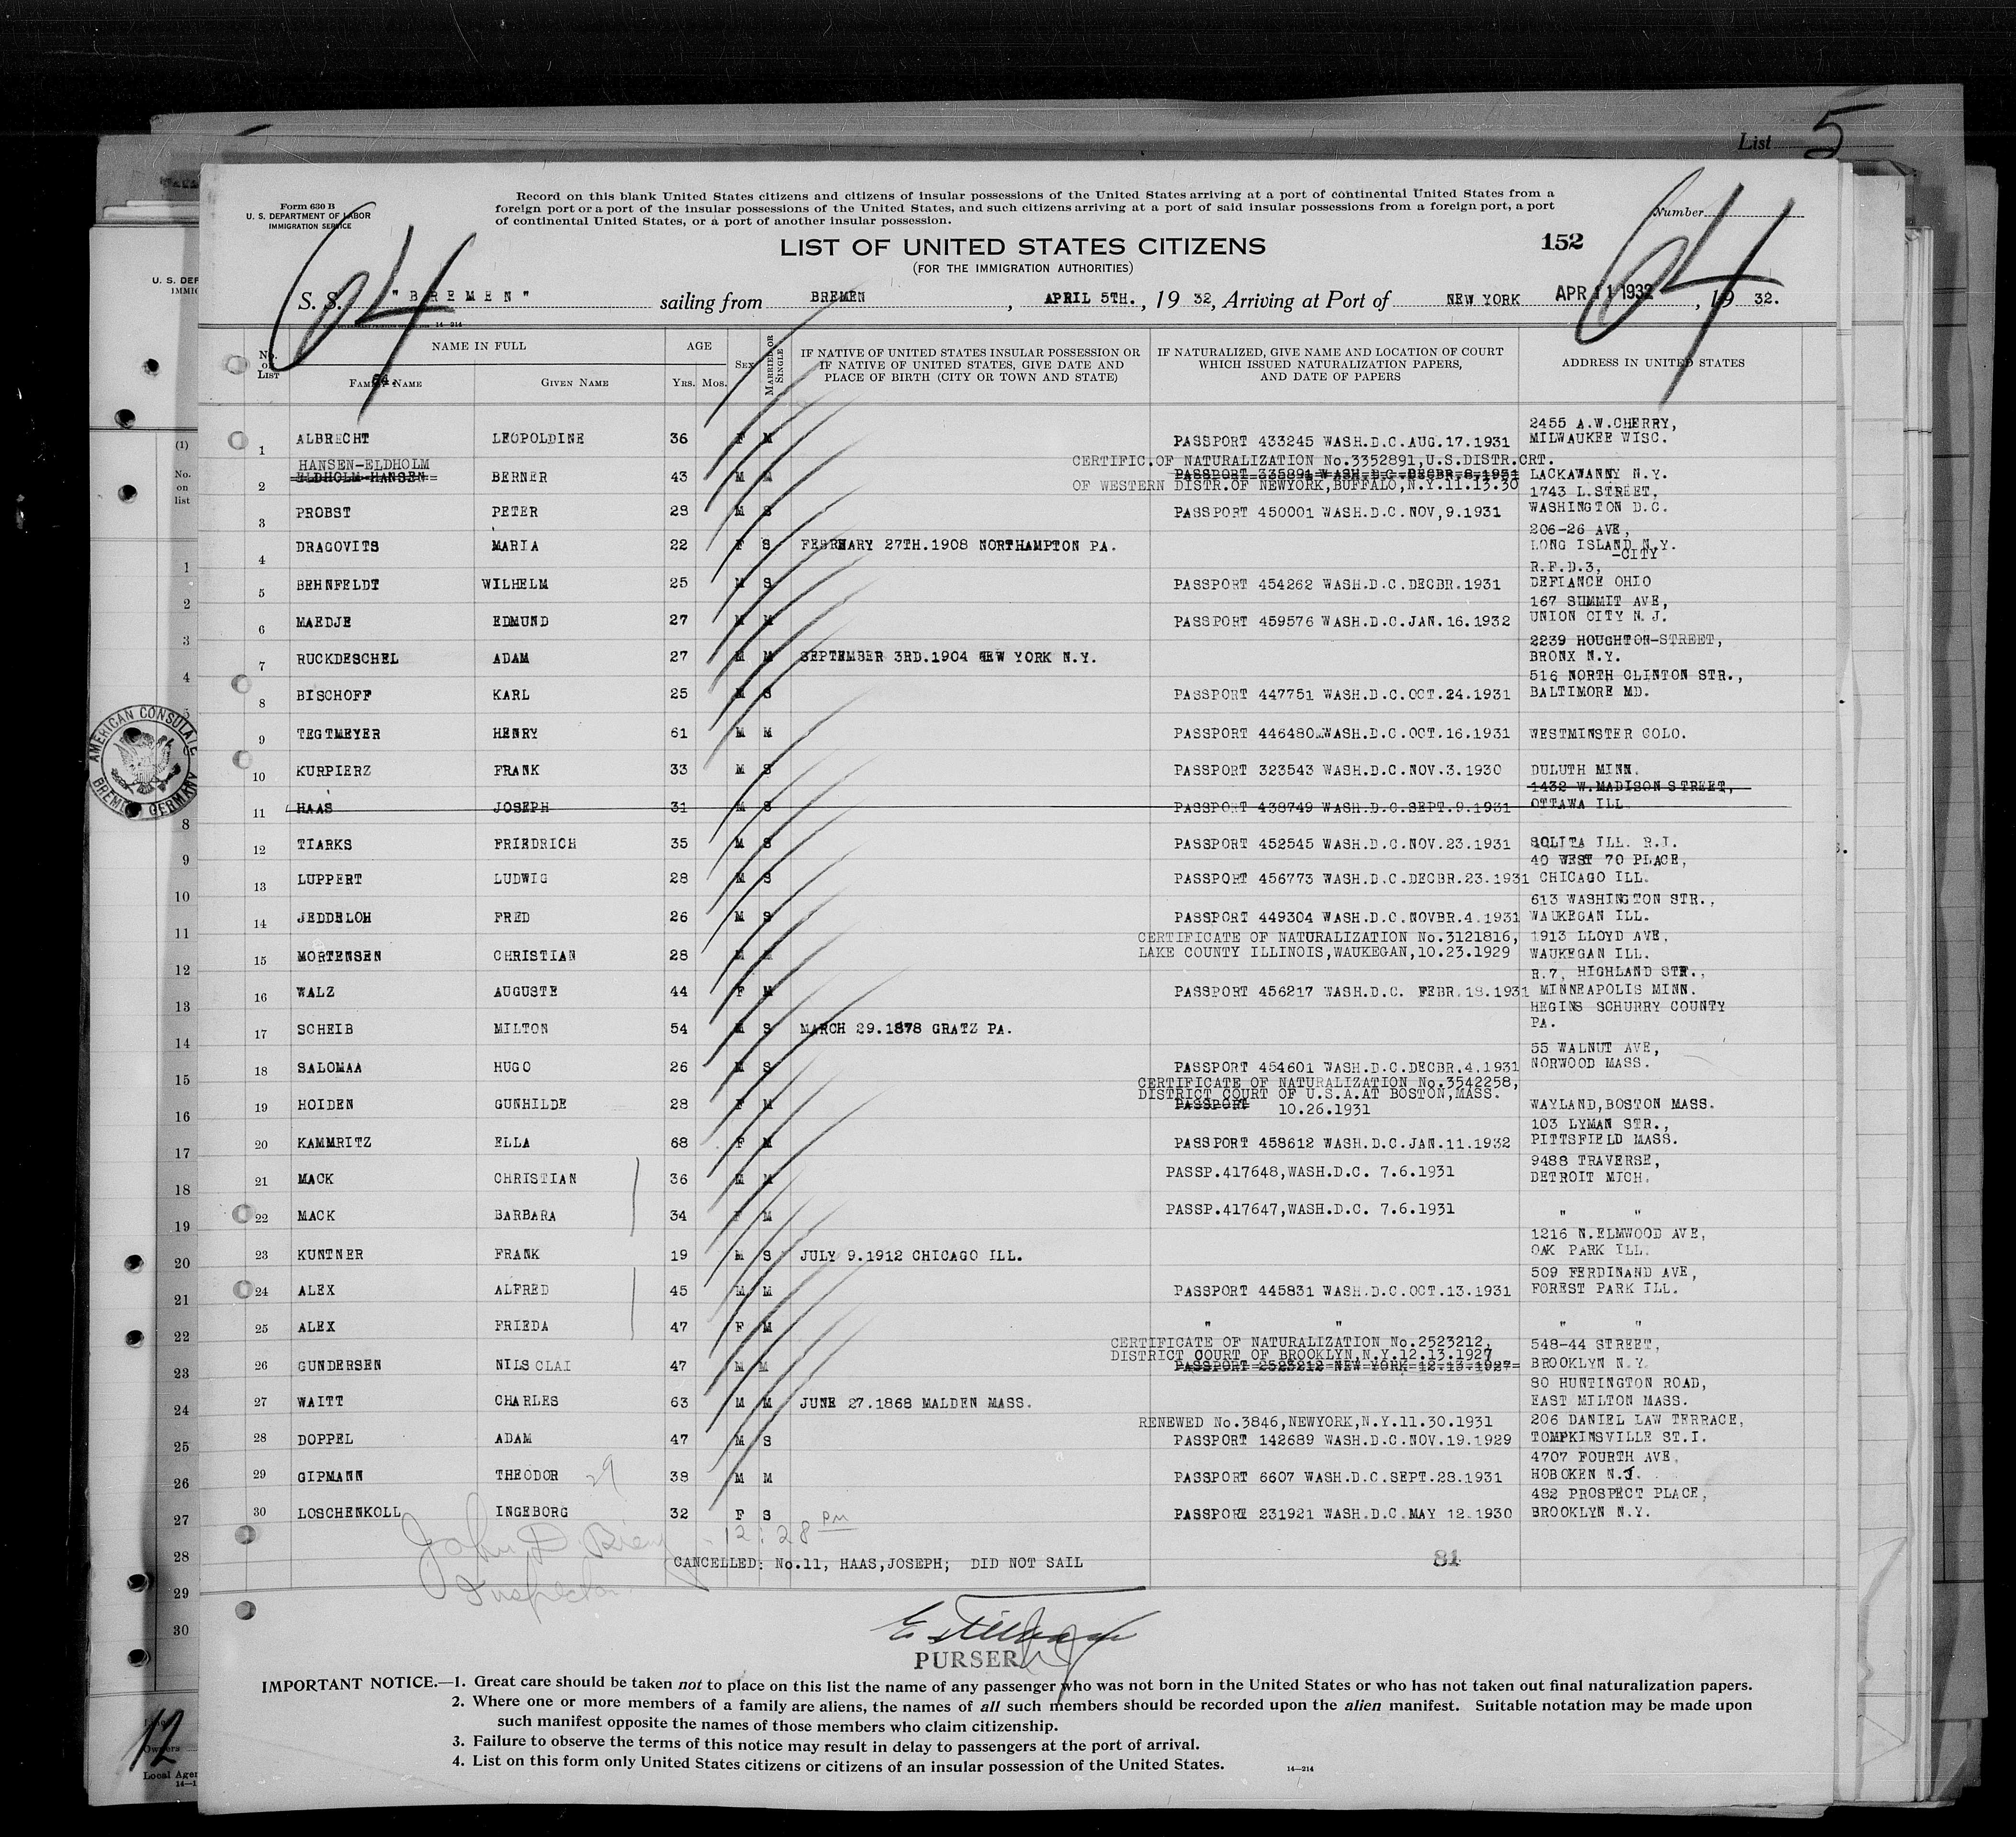 List 5
Form 630 B
U. S. DEPARTMENT OF LABOR
IMMIGRATION SERVICE
Record on this blank United States citizens and citizens of insular possessions of the United States arriving at a port of continental United States from a
foreign port or a port of the insular possessions of the United States, and such citizens arriving at a port of said insular possessions from a foreign port, a port
of continental United States, or a port of another insular possession.
Number
64
64
LIST OF UNITED STATES CITIZENS
152
(FOR THE IMMIGRATION AUTHORITIES)
S. S. "BREMEN" sailing from BREMEN, APRIL 5TH., 1932, Arriving at Port of NEW YORK APR 11 1932, 1932.
No. on List
NAME IN FULL
Family Name
Given Name
AGE
Yrs. Mos.
Sex
Married or Single
IF NATIVE OF UNITED STATES INSULAR POSSESSION OR
IF NATIVE OF UNITED STATES, GIVE DATE AND
PLACE OF BIRTH (CITY OR TOWN AND STATE)
IF NATURALIZED, GIVE NAME AND LOCATION OF COURT
WHICH ISSUED NATURALIZATION PAPERS,
AND DATE OF PAPERS
ADDRESS IN UNITED STATES
2455 A.W.CHERRY,
1 ALBRECHT LEOPOLDINE 36 F M PASSPORT 433245 WASH.D.C.AUG.17.1931 MILWAUKEE WISC.
HANSEN-ELDHOLM CERTIFIC.OF NATURALIZATION No.3352891,U.S.DISTR.CRT.
2 ELDHOLM-HANSEN BERNER 43 M M PASSPORT 335891 WASH.D.C.DECBR.8,1931 LACKAWANNY N.Y.
OF WESTERN DISTR.OF NEWYORK,BUFFALO,N.Y.11.13.30
1743 L.STREET,
3 PROBST PETER 29 M S PASSPORT 450001 WASH.D.C.NOV,9.1931 WASHINGTON D.C.
206-26 AVE,
4 DRAGOVITS MARIA 22 F S FEBRUARY 27TH.1908 NORTHAMPTON PA. LONG ISLAND N.Y.
-CITY
R.F.D.3,
5 BEHNFELDT WILHELM 25 M S PASSPORT 454262 WASH.D.C.DECBR.1931 DEFIANCE OHIO
167 SUMMIT AVE,
6 MAEDJE EDMUND 27 M M PASSPORT 459576 WASH.D.C.JAN.16.1932 UNION CITY N.J.
2239 HOUGHTON-STREET,
7 RUCKDESCHEL ADAM 27 M M SEPTEMBER 3RD.1904 NEW YORK N.Y. BRONX N.Y.
516 NORTH CLINTON STR.,
8 BISCHOFF KARL 25 M S PASSPORT 447751 WASH.D.C.OCT.24.1931 BALTIMORE MD.
9 TEGTMEYER HENRY 61 M M PASSPORT 446480 WASH.D.C.OCT.16.1931 WESTMINSTER COLO.
10 KURPIERZ FRANK 33 M S PASSPORT 323543 WASH.D.C.NOV.3.1930 DULUTH MINN.
1432 W.MADISON STREET,
11 HAAS JOSEPH 31 M S PASSPORT 438749 WASH.D.C.SEPT.9.1931 OTTAWA ILL
12 TIARKS FRIEDRICH 35 M S PASSPORT 452545 WASH.D.C.NOV.23.1931 SOLITA ILL. R.I.
40 WEST 70 PLACE,
13 LUPPERT LUDWIG 28 M S PASSPORT 456773 WASH.D.C.DECBR.23.1931 CHICAGO ILL.
613 WASHINGTON STR.,
14 JEDDELOH FRED 26 M S PASSPORT 449304 WASH.D.C.NOVBR.4.1931 WAUKEGAN ILL.
CERTIFICATE OF NATURALIZATION No.3121816, 1913 LLOYD AVE,
15 MORTENSEN CHRISTIAN 28 M M LAKE COUNTY ILLINOIS,WAUKEGAN,10.23.1929 WAUKEGAN ILL.
R.7, HIGHLAND STR.,
16 WALZ AUGUSTE 44 F M PASSPORT 456217 WASH.D.C. FEBR.18.1931 MINNEAPOLIS MINN.
HEGINS SCHURRY COUNTY
17 SCHEIB MILTON 54 M S MARCH 29.1878 GRATZ PA. PA.
55 WALNUT AVE,
18 SALOMAA HUGO 26 M S PASSPORT 454601 WASH.D.C.DECBR.4.1931 NORWOOD MASS.
CERTIFICATE OF NATURALIZATION No.3542258,
DISTRICT COURT OF U.S.A.AT BOSTON,MASS.
19 HOIDEN GUNHILDE 28 F M PASSPORT 10.26.1931 WAYLAND,BOSTON MASS.
103 LYMAN STR.,
20 KAMMRITZ ELLA 68 F M PASSPORT 458612 WASH.D.C.JAN.11.1932 PITTSFIELD MASS.
9488 TRAVERSE,
21 MACK CHRISTIAN 36 M M PASSP.417648,WASH.D.C. 7.6.1931 DETROIT MICH.
22 MACK BARBARA 34 F M PASSP.417647,WASH.D.C. 7.6.1931 " "
1216 N.ELMWOOD AVE,
23 KUNTNER FRANK 19 M S JULY 9.1912 CHICAGO ILL. OAK PARK ILL.
509 FERDINAND AVE,
24 ALEX ALFRED 45 M M PASSPORT 445831 WASH.D.C.OCT.13.1931 FOREST PARK ILL.
25 ALEX FRIEDA 47 F M " " " "
CERTIFICATE OF NATURALIZATION No.2523212, 548-44 STREET,
DISTRICT COURT OF BROOKLYN,N.Y.12.13.1927
26 GUNDERSEN NILS CLAI 47 M M PASSPORT 2523212 NEW YORK 12.13.1927 BROOKLYN N.Y.
80 HUNTINGTON ROAD,
27 WAITT CHARLES 63 M M JUNE 27.1868 MALDEN MASS. EAST MILTON MASS.
RENEWED No.3846,NEWYORK,N.Y.11.30.1931 206 DANIEL LAW TERRACE,
28 DOPPEL ADAM 47 M S PASSPORT 142689 WASH.D.C.NOV.19.1929 TOMPKINSVILLE ST.I.
4707 FOURTH AVE,
29 GIPMANN THEODOR 29 38 M M PASSPORT 6607 WASH.D.C.SEPT.28.1931 HOBOKEN N.J.
482 PROSPECT PLACE,
30 LOSCHENKOLL INGEBORG 32 F S PASSPORT 231921 WASH.D.C.MAY 12.1930 BROOKLYN N.Y.
John D. - 12:28 PM
Inspector.
CANCELLED: No.11, HAAS,JOSEPH; DID NOT SAIL
81
PURSER
IMPORTANT NOTICE.—1. Great care should be taken not to place on this list the name of any passenger who was not born in the United States or who has not taken out final naturalization papers.
2. Where one or more members of a family are aliens, the names of all such members should be recorded upon the alien manifest. Suitable notation may be made upon
such manifest opposite the names of those members who claim citizenship.
3. Failure to observe the terms of this notice may result in delay to passengers at the port of arrival.
4. List on this form only United States citizens or citizens of an insular possession of the United States.
14—214
U. S. DEP
IMMIG
(1)
No.
on
list
1
2
3
4
5
8
9
10
11
12
13
14
15
16
17
18
19
20
21
22
23
24
25
26
27
28
29
30
AMERICAN CONSULATE
BREMEN GERMANY
12
Owners
Local Agen
14—1